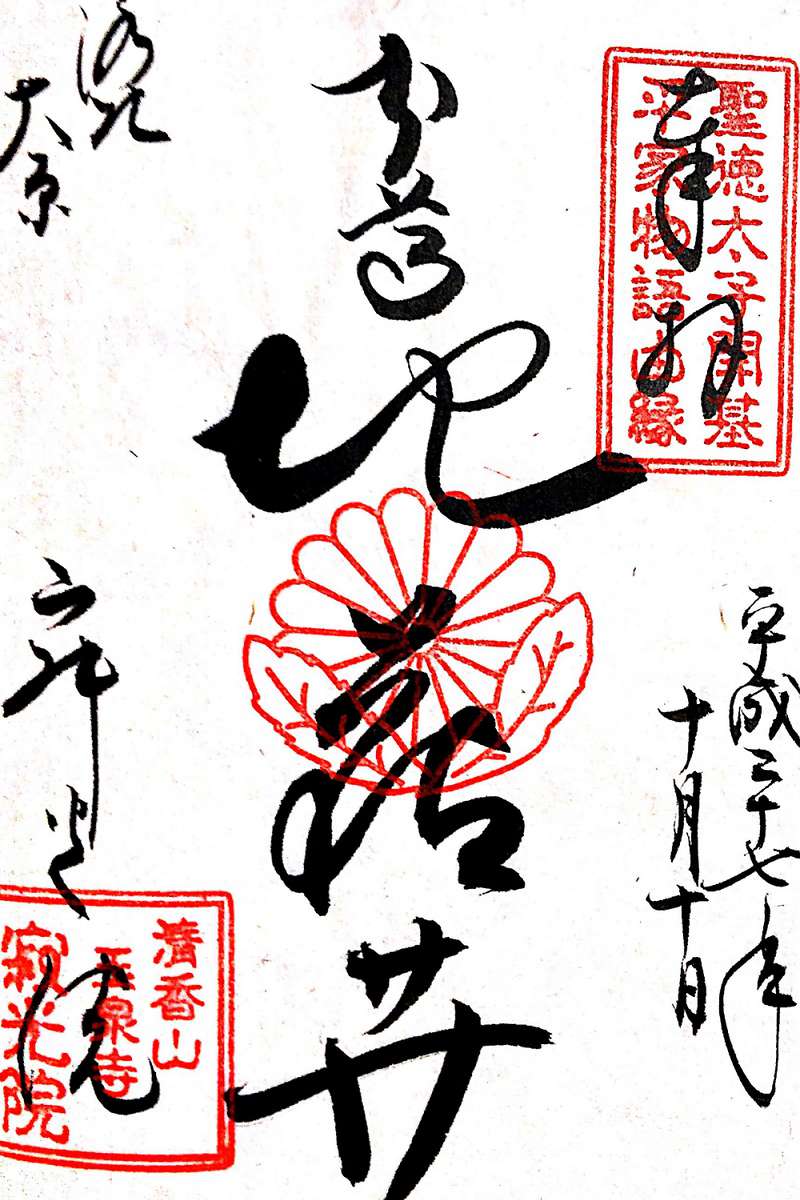 奉拝
聖徳太子開基
平家物語由縁
平成二十七年
十月十日
地蔵𦬇
洛北
大原
寂光院
清香山
玉泉寺
寂光院